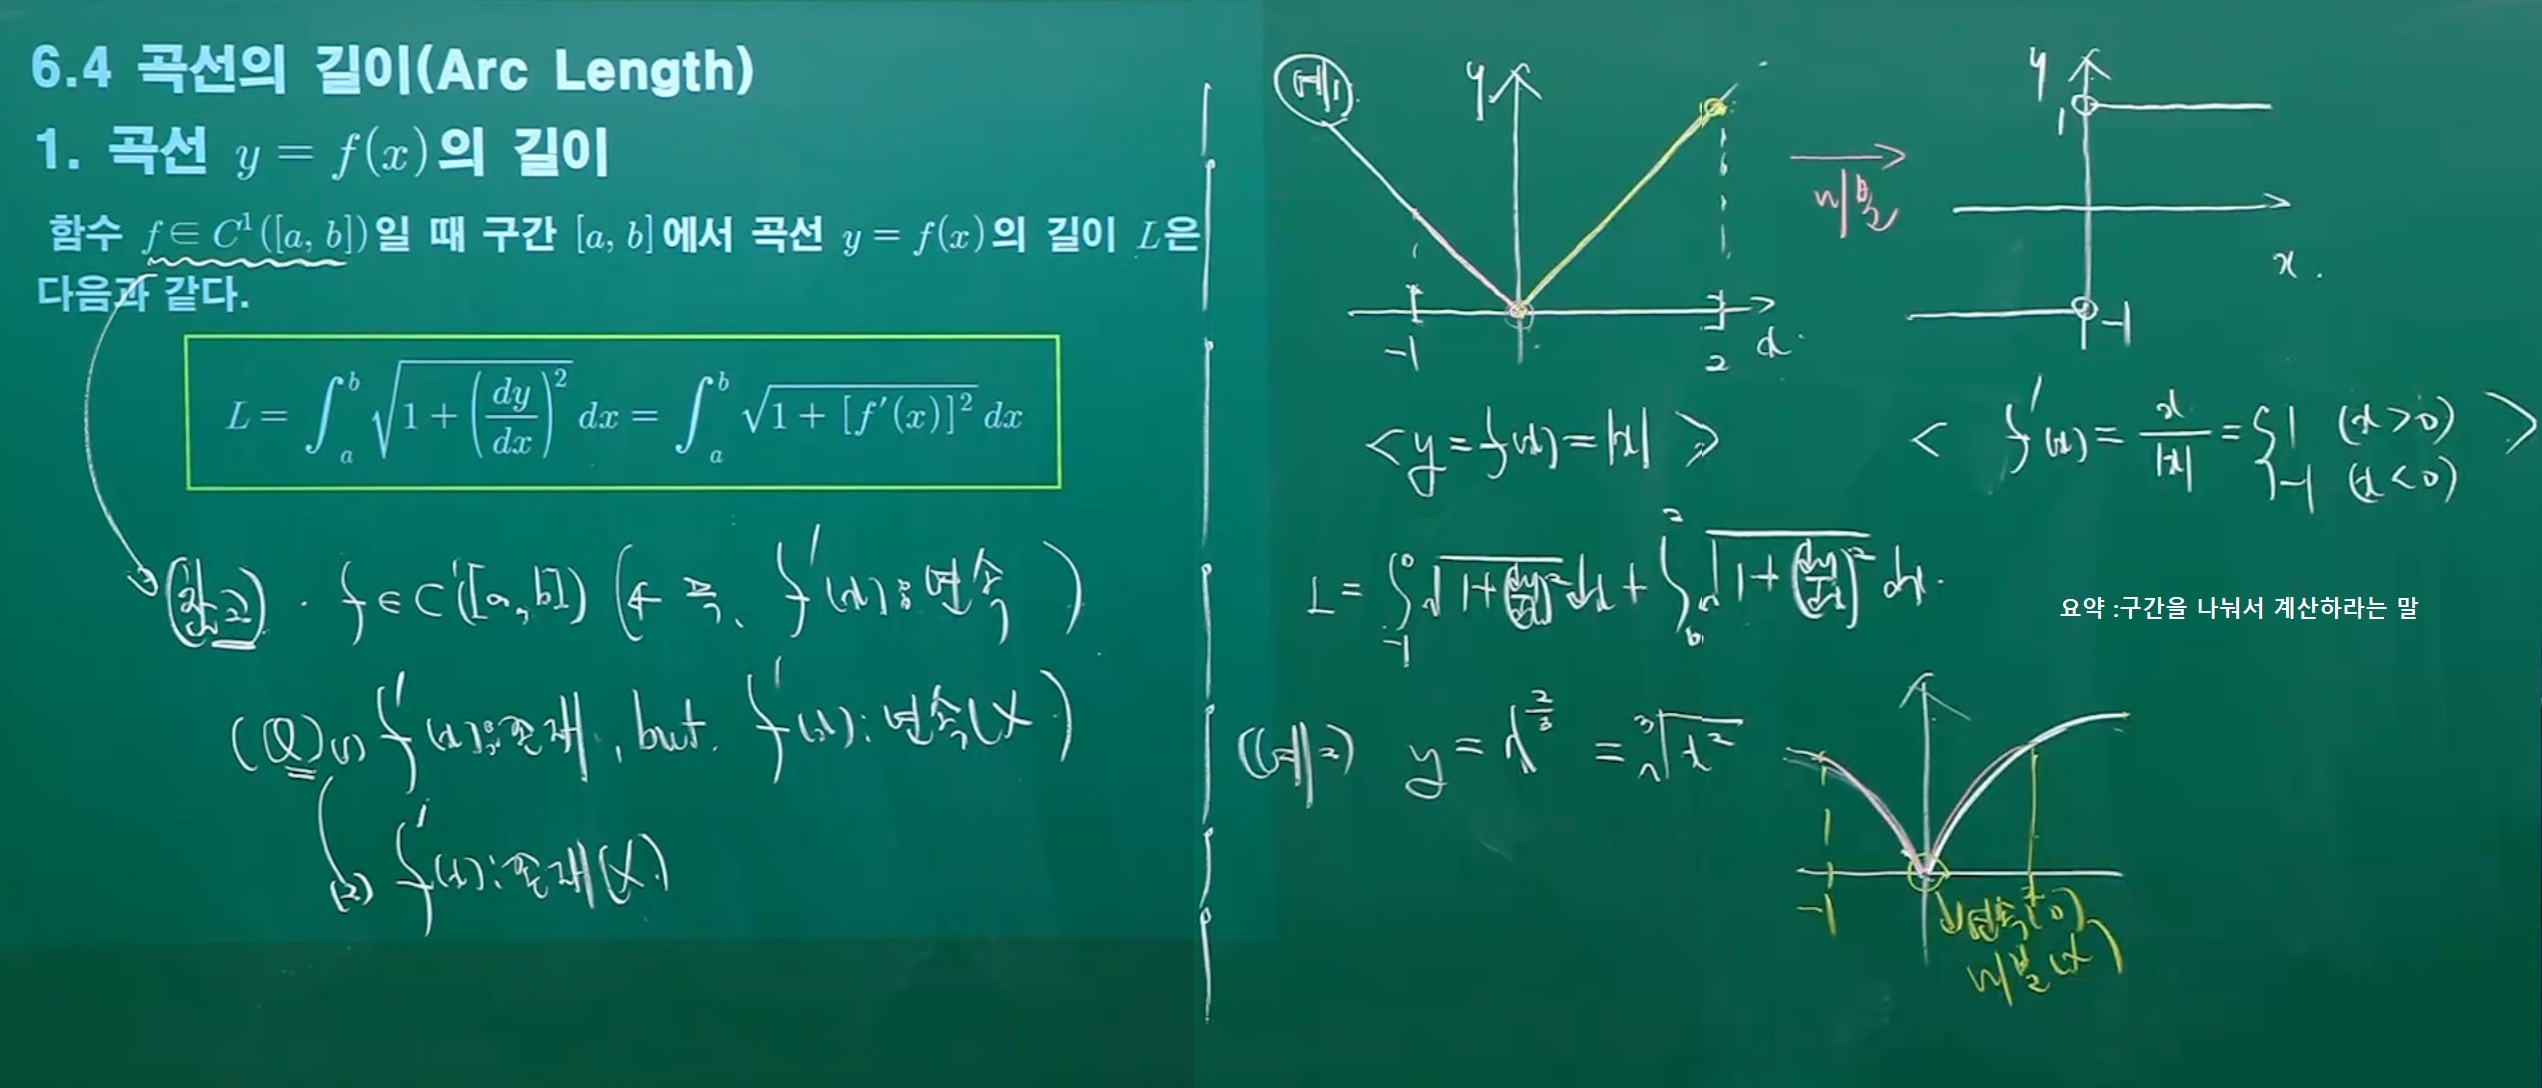 6.4 곡선의 길이(Arc Length)
1. 곡선 y = f(x)의 길이
함수 f∈C¹([a, b])일 때 구간 [a, b]에서 곡선 y = f(x)의 길이 L은
다음과 같다.
L = ∫_a^b √(1 + (dy/dx)²) dx = ∫_a^b √(1 + [f′(x)]²) dx
참고 · f∈C¹([a, b]) (← 즉, f′(x) : 연속)
(Q) (1) f′(x) : 존재, but f′(x) : 연속(X)
(2) f′(x) : 존재(X)
예1)
y
-1
2
x
<y = f(x) = |x|>
미분
y
1
x
-1
<f′(x) = x/|x| = { 1 (x>0) -1 (x<0) >
L = ∫_{-1}^0 √(1+(dy/dx)²) dx + ∫_0^2 √(1+(dy/dx)²) dx.
요약 :구간을 나눠서 계산하라는 말
(예2) y = x^{2/3} = ∛x²
-1
연속(O)
미분(X)